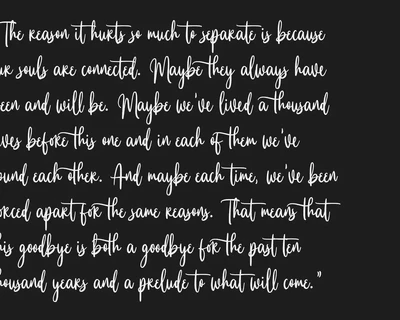 The reason it hurts so much to separate is because
ur souls are connected. Maybe they always have
een and will be. Maybe we've lived a thousand
ves before this one and in each of them we've
ound each other. And maybe each time, we've been
orced apart for the same reasons. That means that
his goodbye is both a goodbye for the past ten
housand years and a prelude to what will come."